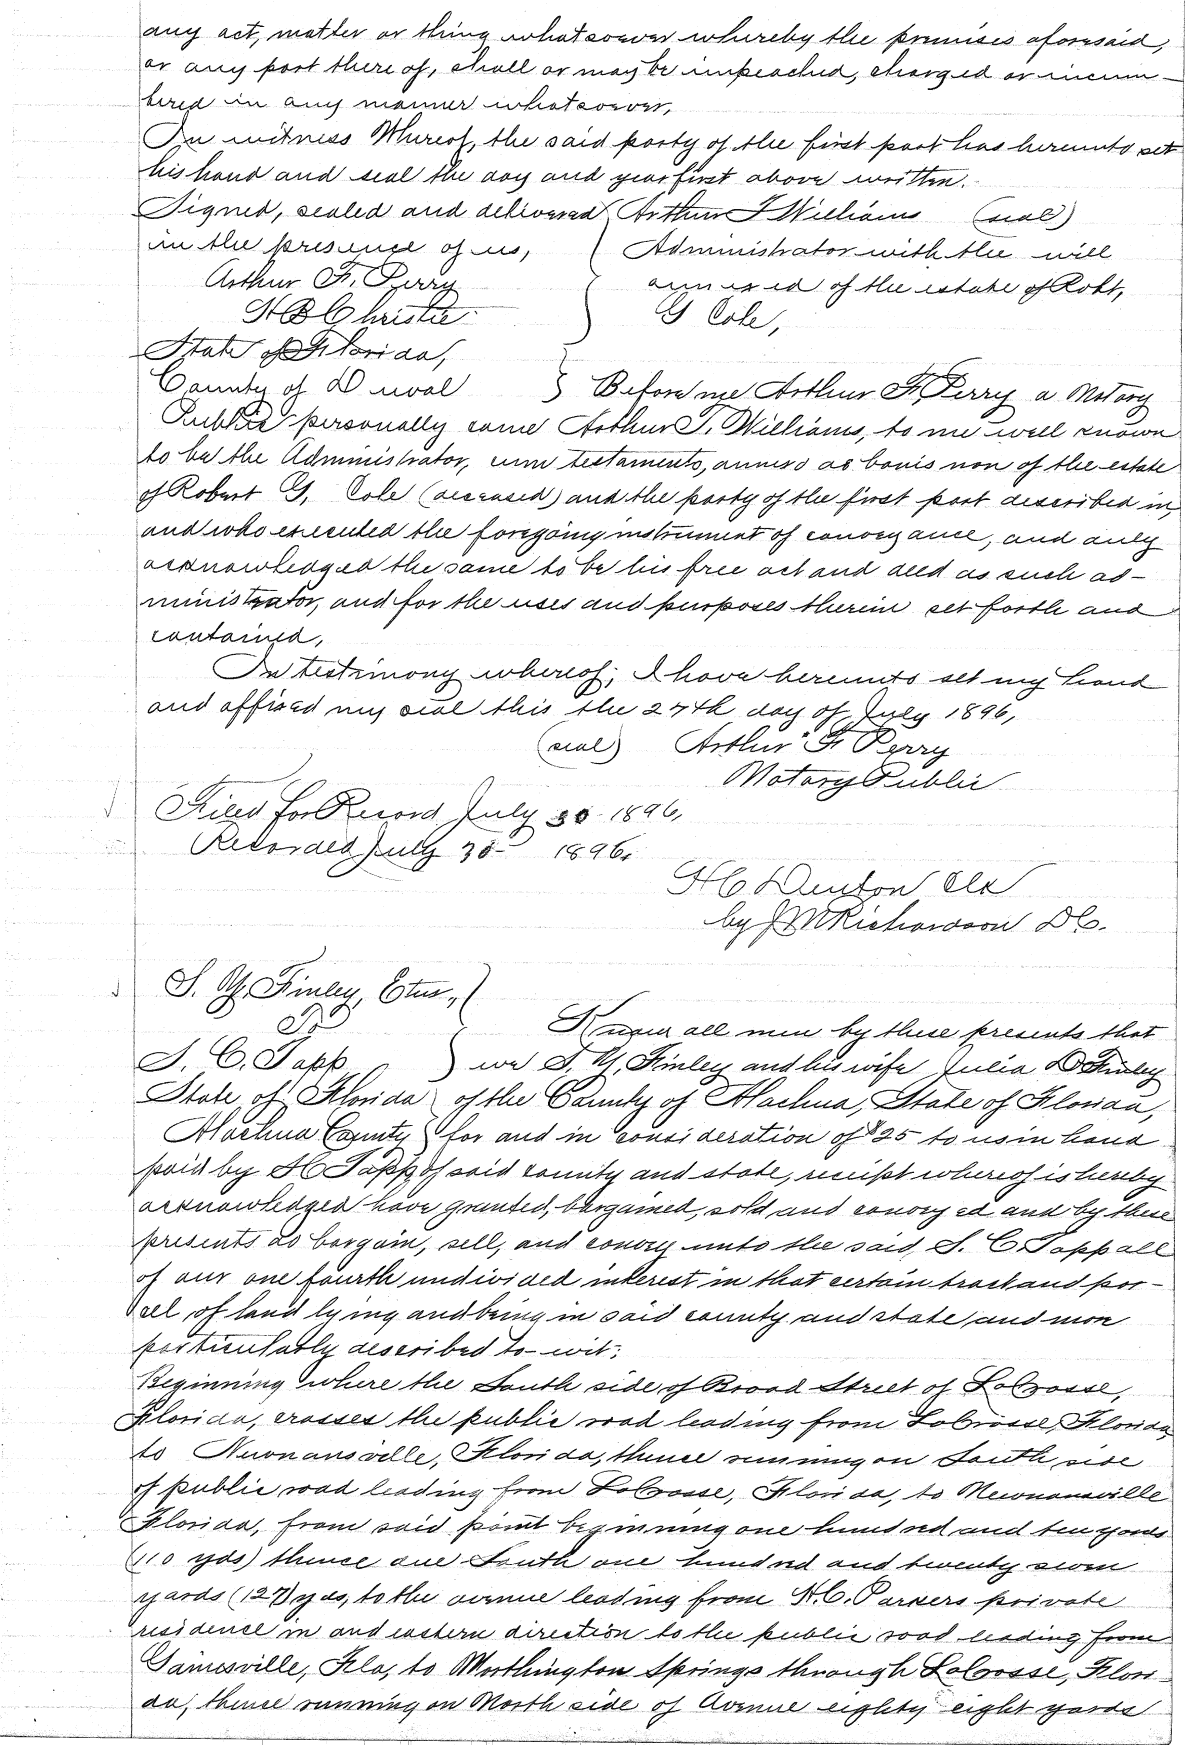 any act, matter or thing whatsoever whereby the premises aforesaid,
or any part there of, shall or may be impeached, charged or incum-
bered in any manner whatsoever,
In witness Whereof, the said party of the first part has hereunto set
his hand and seal the day and year first above written.
Signed, sealed and delivered Arthur T Williams (seal)
in the presence of us, Administrator with the will
Arthur F. Perry annexed of the estate of Robt,
H B Christie G Cole,
State of Florida,
County of Duval } Before me Arthur F. Perry a Notary
Public personally came Arthur T. Williams, to me well known
to be the Administrator, cum testamento, annexo de bonis non of the estate
of Robert G, Cole (deceased) and the party of the first part described in,
and who executed the foregoing instrument of conveyance, and duly
acknowledged the same to be his free act and deed as such ad-
ministrator, and for the uses and purposes therein set forth and
contained,
In testimony whereof; I have hereunto set my hand
and affixed my seal this the 27th day of July 1896,
(seal) Arthur F Perry
Notary Public
Filed for Record July 30 1896,
Recorded July 30 1896,
H C Denton Clk
by J M Richardson D C.
S. Y. Finley, Etux,
To
S. C. Tapp
Know all men by these presents that
we S. Y. Finley and his wife Julia D Finley
State of Florida of the County of Alachua, State of Florida,
Alachua County for and in consideration of $25 to us in hand
paid by S C Tapp of said county and state, receipt whereof is hereby
acknowledged have granted, bargained, sold and conveyed and by these
presents do bargain, sell, and convey unto the said, S. C. Tapp all
of our one fourth undivided interest in that certain tract and par-
cel of land lying and being in said county and state and more
particularly described to-wit;
Beginning where the South side of Broad Street of LaCrosse,
Florida, crosses the public road leading from LaCrosse, Florida
to Newnansville, Florida, thence running on South side
of public road leading from LaCrosse, Florida, to Newnansville
Florida, from said point beginning one hundred and ten yards
(110 yds) thence due South one hundred and twenty seven
yards (127) yds, to the avenue leading from H. C. Parkers private
residence in and eastern direction to the public road leading from
Gainesville, Fla, to Worthington Springs through LaCrosse, Flori-
da, thence running on North side of Avenue eighty eight yards